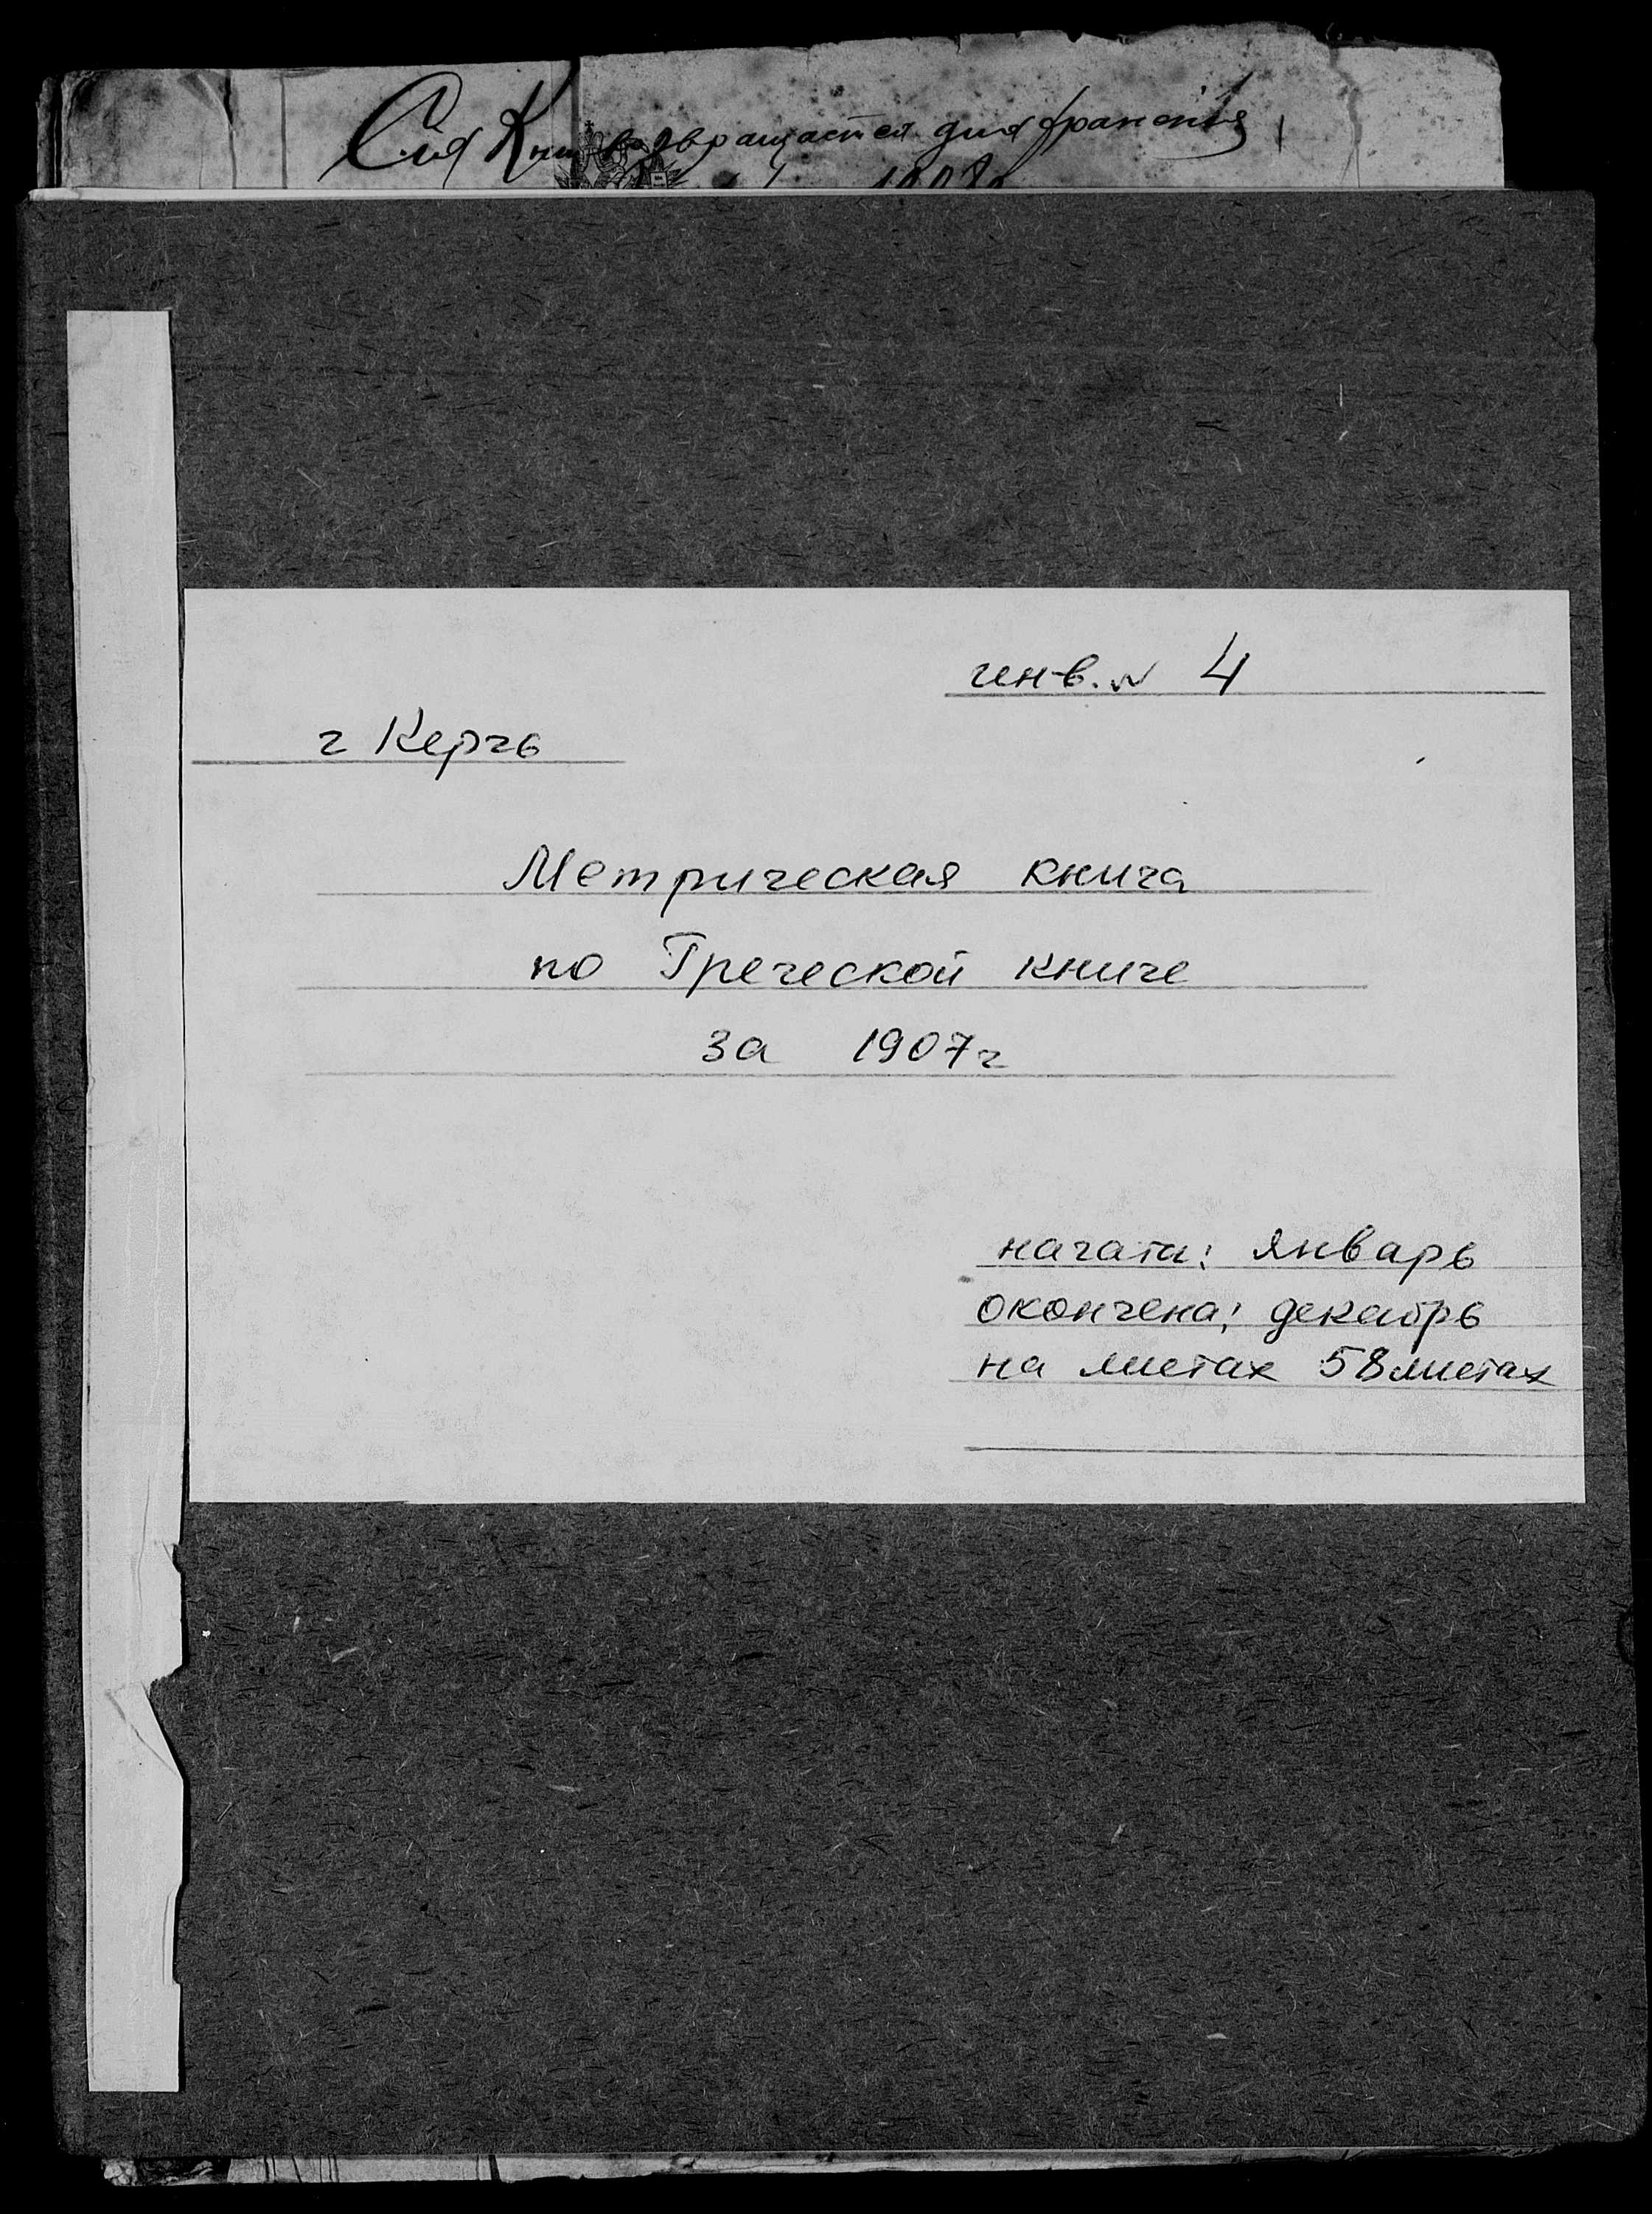 Сия Кни возвращается для хранения
инв. № 4
г Керчь
Метрическая книга
по Греческой книге
за 1907 г
начата: январь
окончена: декабрь
на листах 58 листах